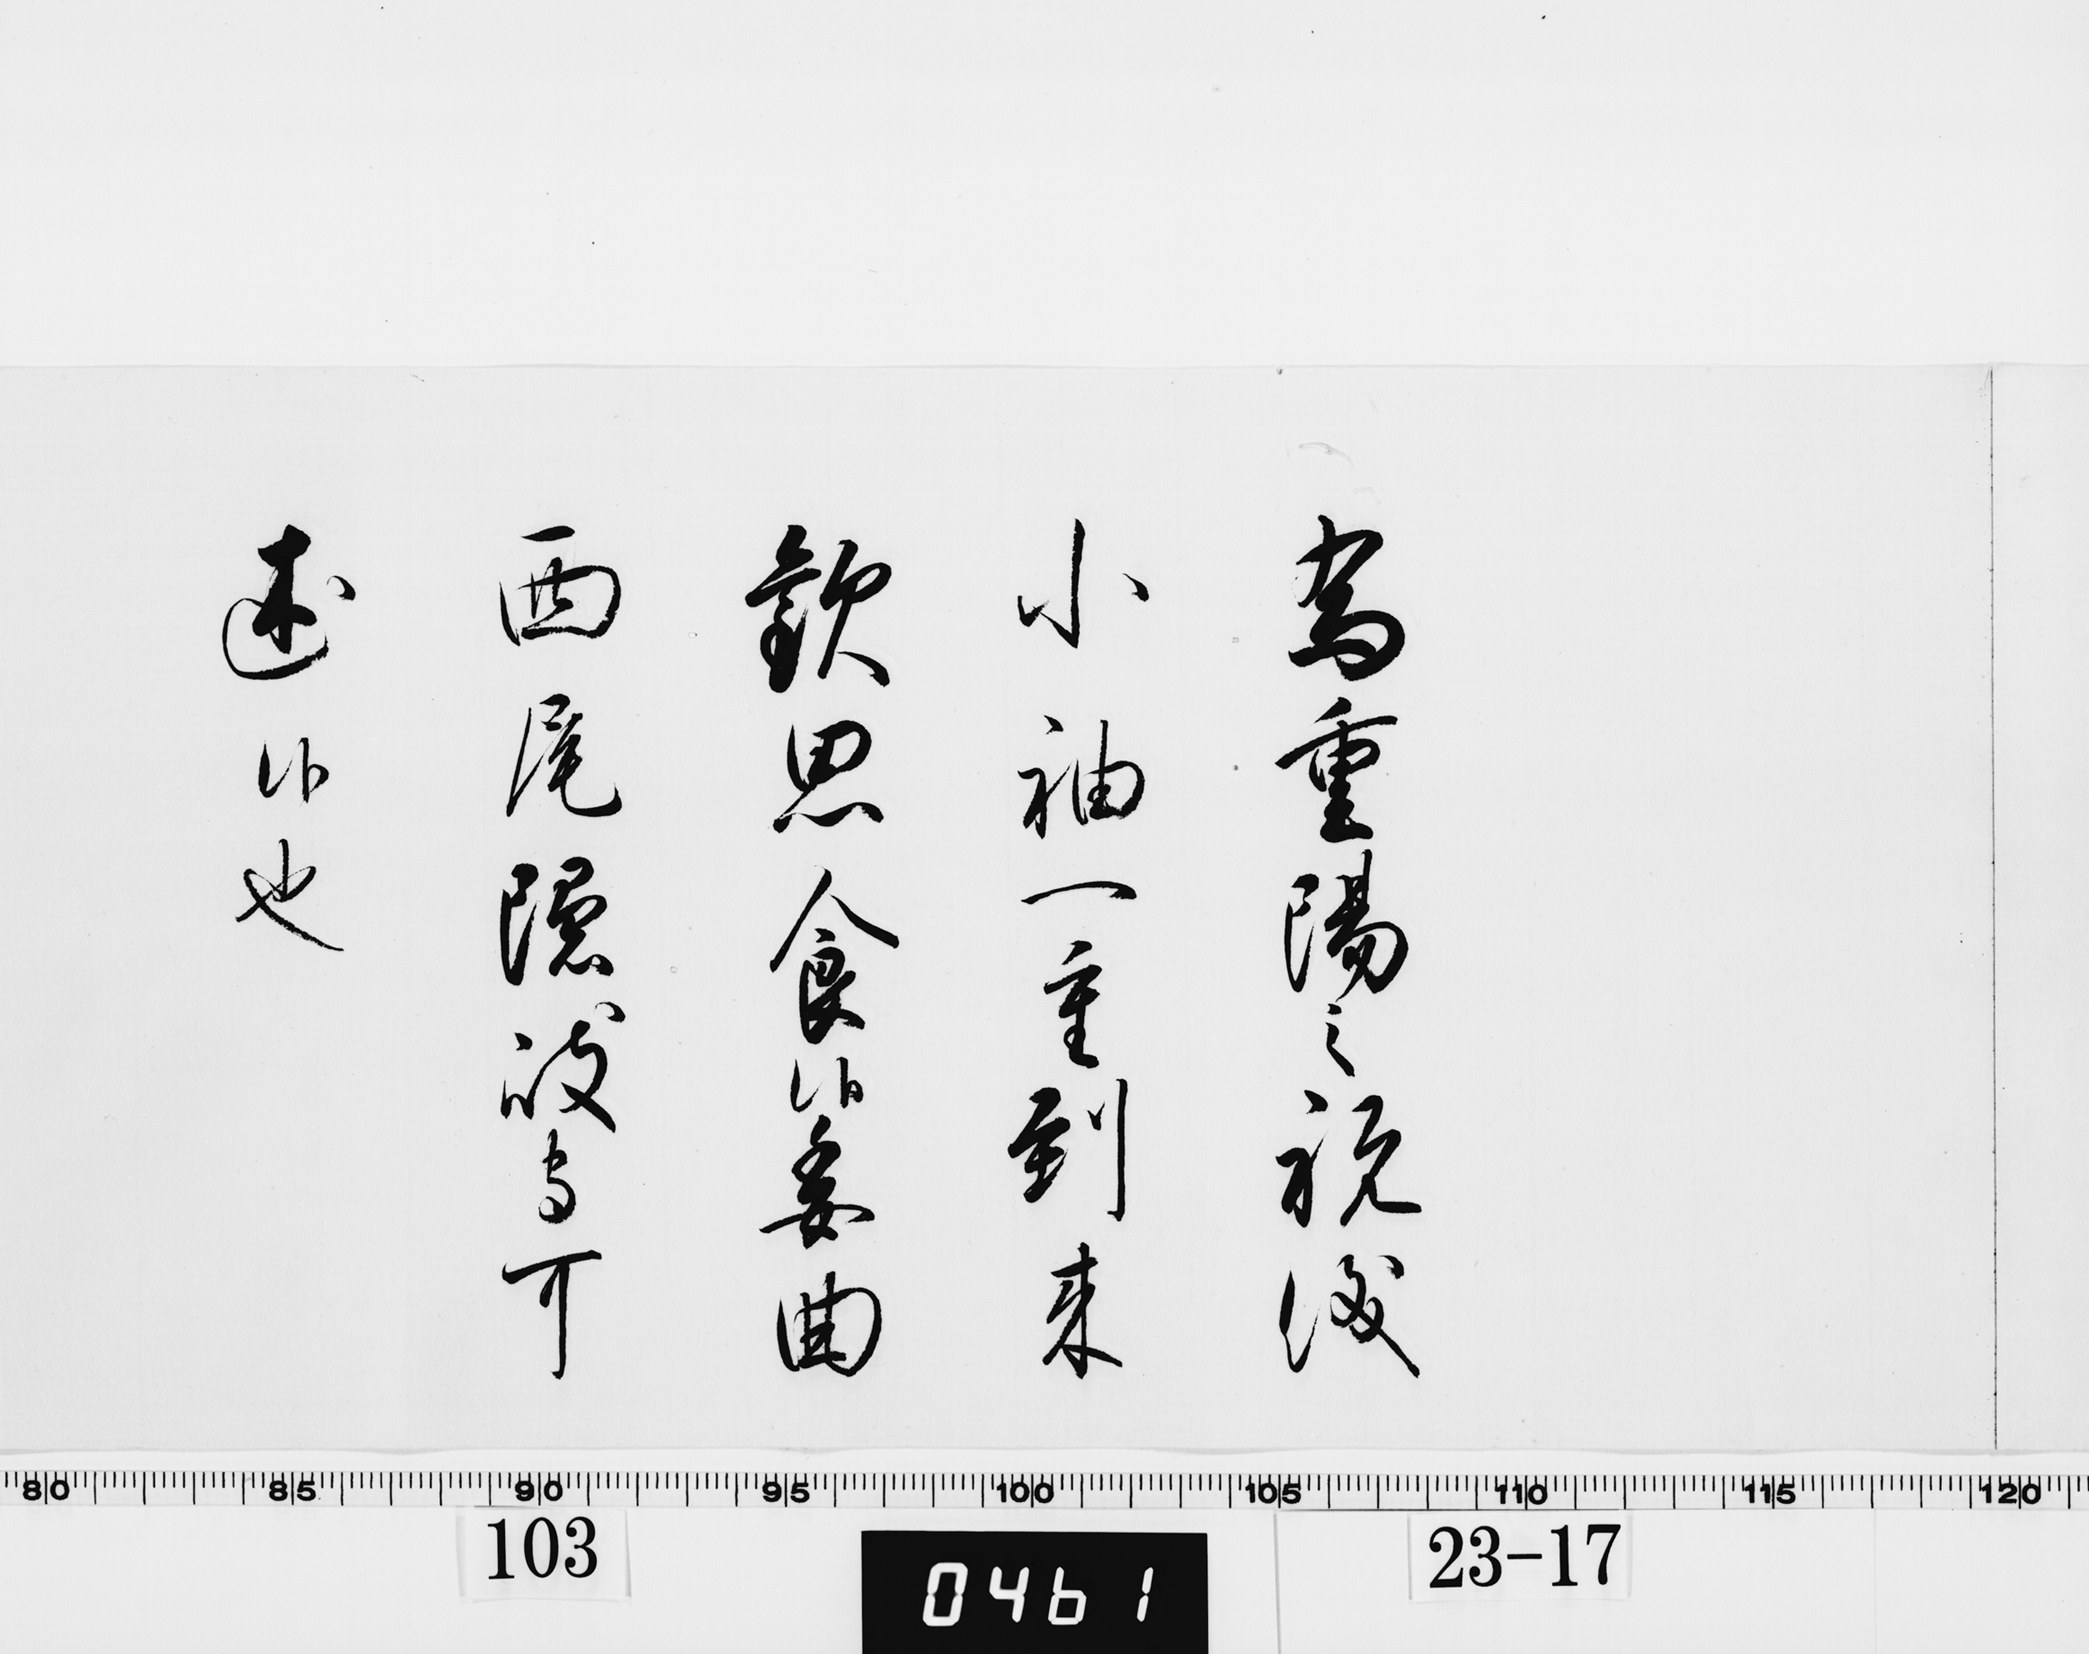 為重陽之祝儀
小袖一重到来
歓思食候委曲
西尾隠岐守可
述候也
80 85 90 95 100 105 110 115 120
103
0461
23-17